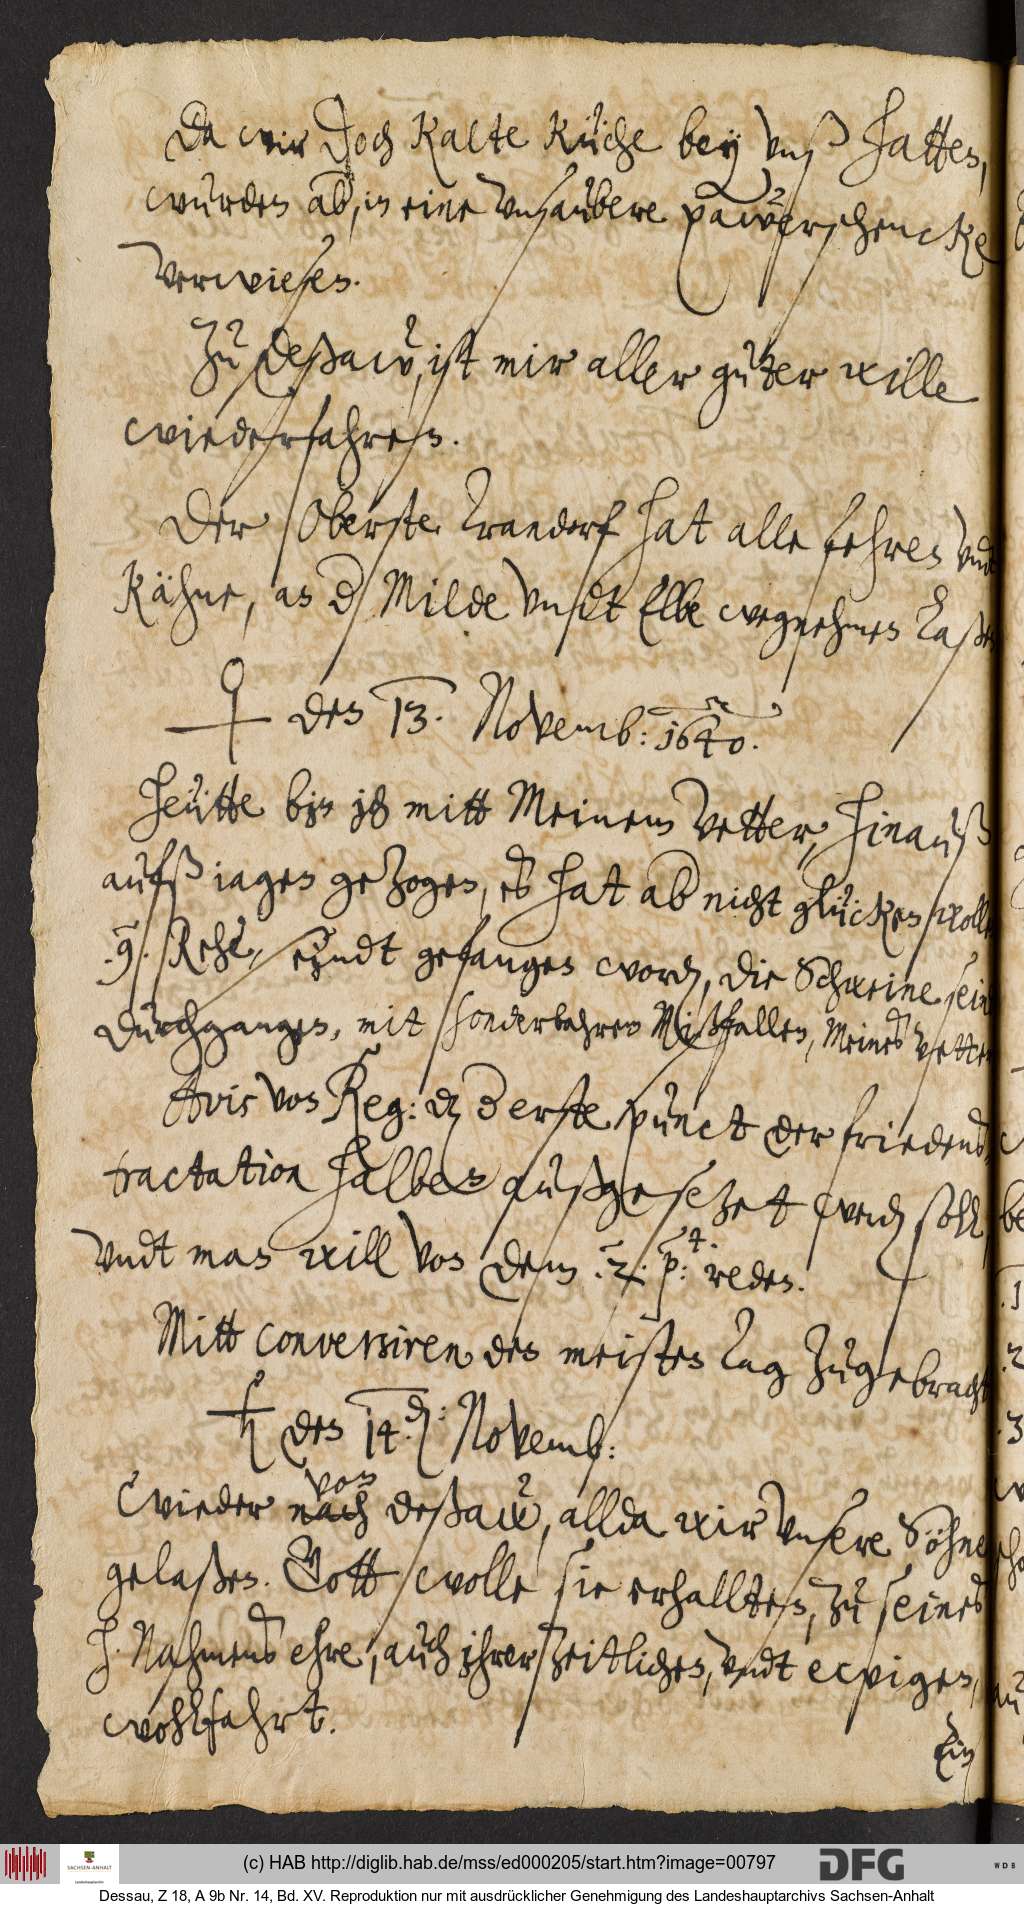 Da wir doch kalte küche bey unß hatten,
wurden ab, in eine unsaubere pawerschencke
verwiesen.
Zu Deßaw, ist mir aller guter wille
wiederfahren.
Der Oberste Trandorf hat alle fehren undt
Kähne, an d Milde undt Elbe wegnehmen laßen
♀ den 13. Novemb: 1640.
Heütte bin ich mitt Meinem Vetter, hinauß
aufß iagen gezogen, es hat ab nicht glücken wollen
.9. Rehe, seyndt gefangen word, die Schweine sein
durchgangen, mit sonderbahren Mißfallen, Meines Vettern
Avis von Reg: d d erste punct der friedens
tractation halben außgesezet werd soll,
undt man will von dem .2. p: reden.
Mitt conversiren den meisten Tag zugebracht
♄ den 14. d: Novemb:
von
Wieder nach Deßaw, allda wir unsere Söhne
gelaßen. Gott wolle sie erhallten, zu seines
h. Nahmens ehre, auch ihrer zeitlichen, undt ewigen,
wohlfahrt.
Ein
(c) HAB http://diglib.hab.de/mss/ed000205/start.htm?image=00797
SACHSEN-ANHALT
DFG
WDB
Dessau, Z 18, A 9b Nr. 14, Bd. XV. Reproduktion nur mit ausdrücklicher Genehmigung des Landeshauptarchivs Sachsen-Anhalt